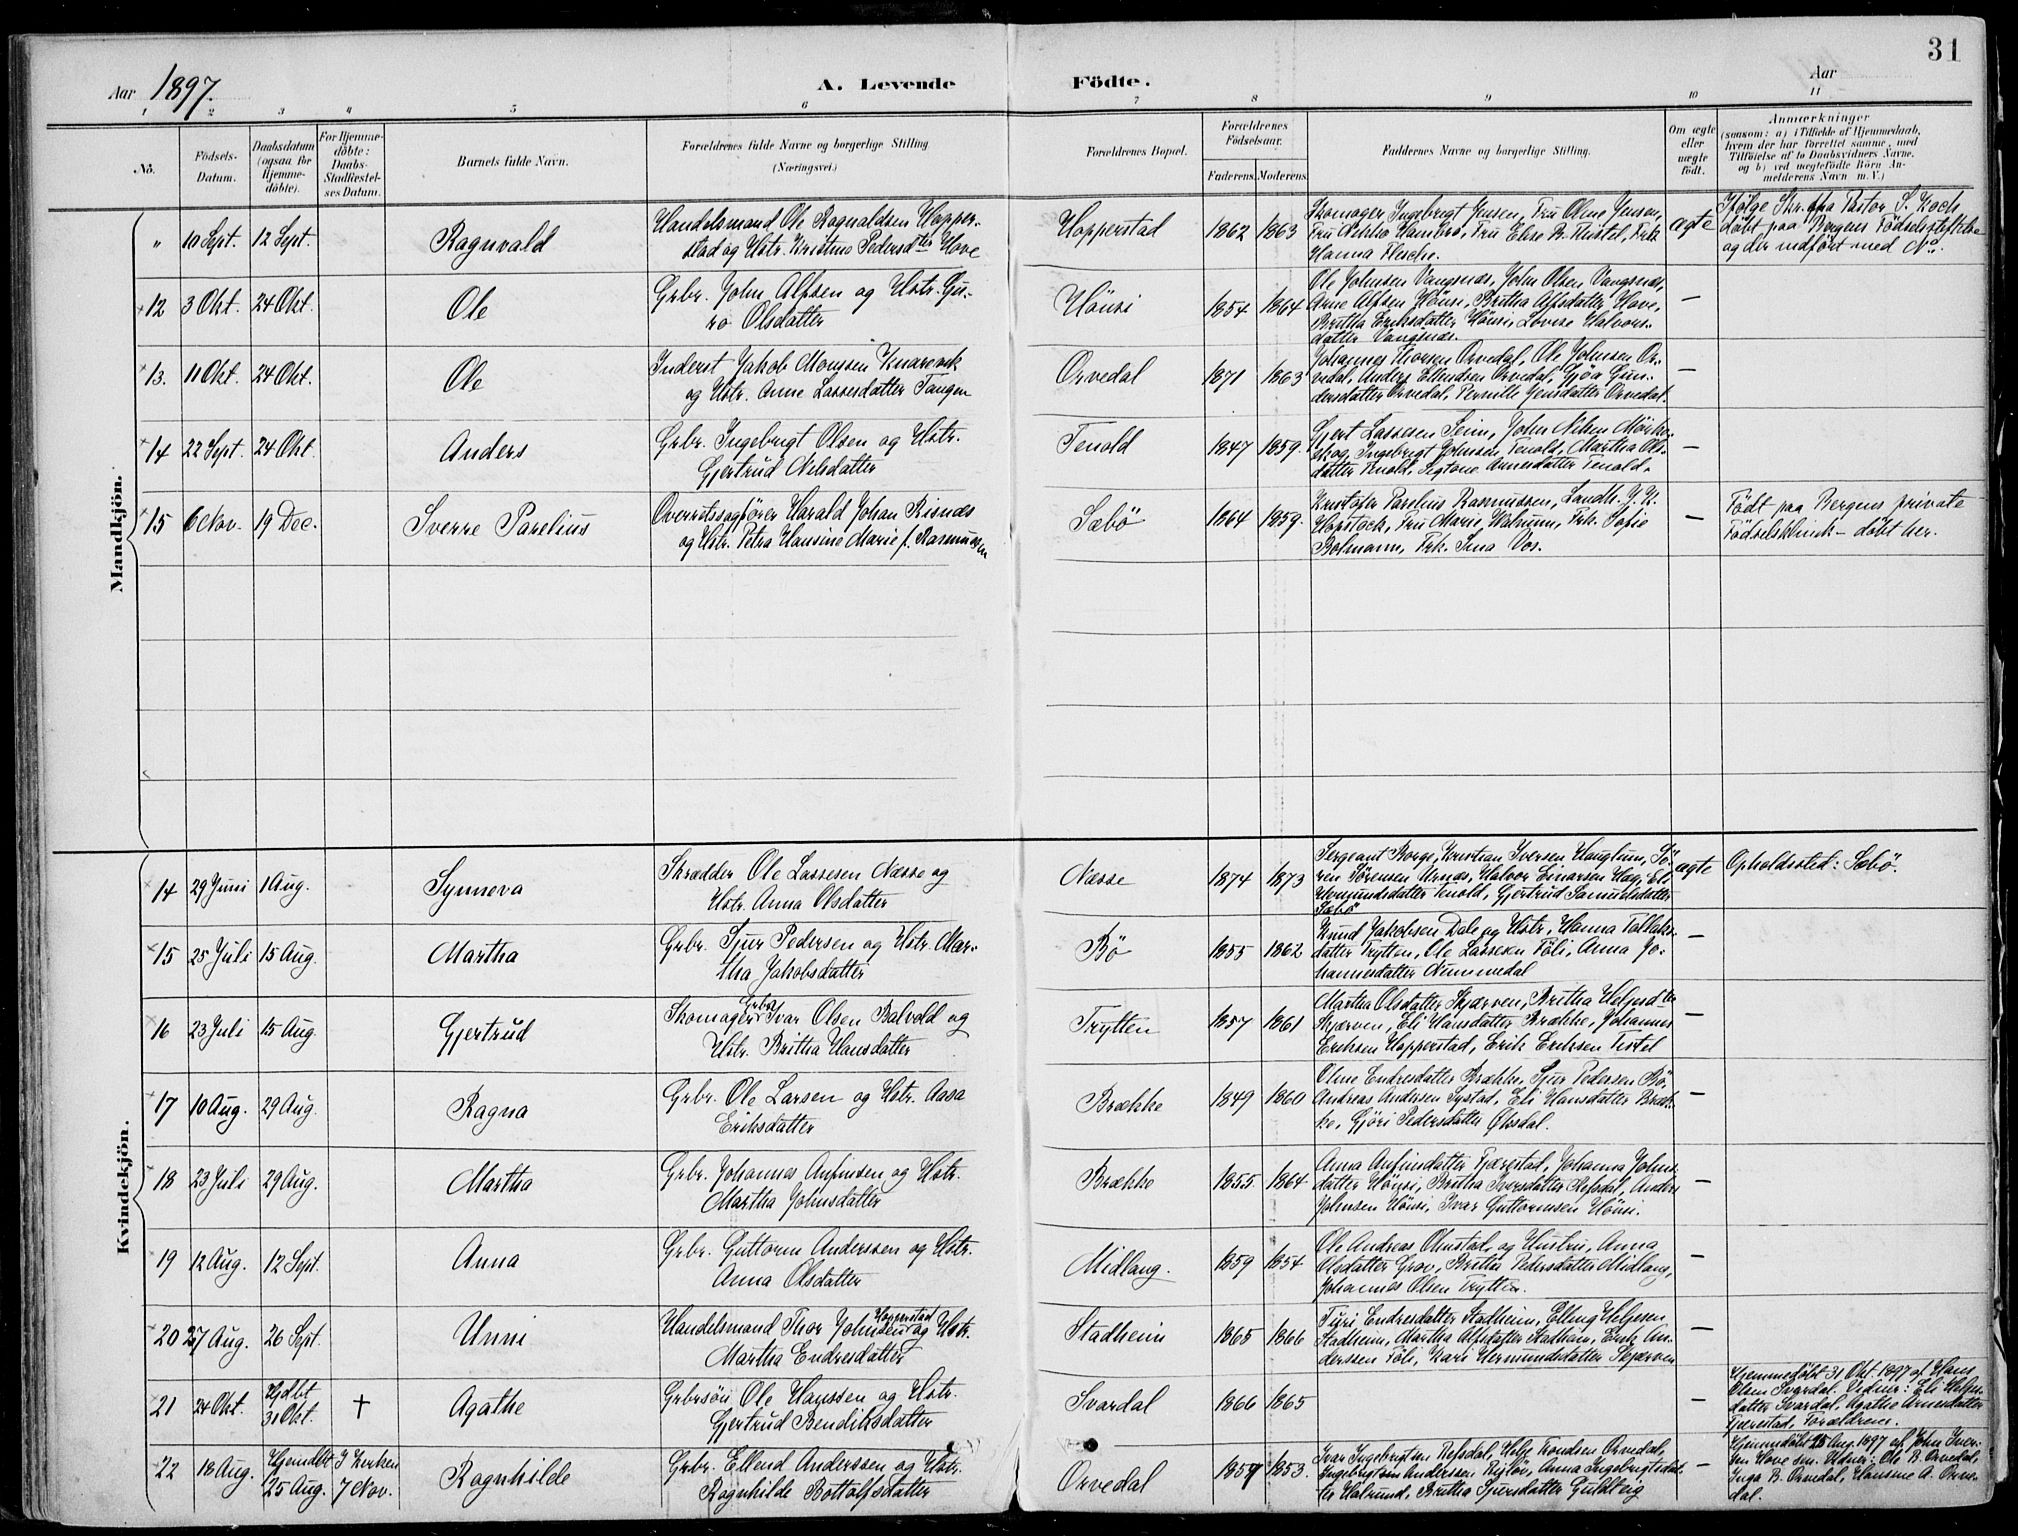 31
Aar 1897.
A. Levende Födte.
Aar
1 2 3 4 5 6 7 8 9 10 11
No.
Födsels-Datum.
Daabsdatum (ogsaa for Hjemmedöbte).
For Hjemmedöbte: Daabs-Stadfæstelses Datum.
Barnets fulde Navn.
Forældrenes fulde Navne og borgerlige Stilling (Næringsvei.)
Forældrenes Bopæl.
Forældrenes Födselsaar.
Faderens. Moderens.
Faddernes Navne og borgerlige Stilling.
Om ægte eller uægte födt.
Anmærkninger
(saasom: a) i Tilfælde af Hjemmedaab,
hvem der har forrettet samme, med
Tilföielse af to Daabsvidners Navne,
og b) ved uægtefödte Börn An-
melderens Navn m. V.)
Mandkjön.
" 10 Sept. 12 Sept. Ragnvald
Handelsmand Ole Ragnaldsen Hopper-
stad og Hstr. Kristine Pedersdter Hove
Hopperstad 1862 1863
Skomager Ingebrigt Jensen, Fru Oline Jensen,
Fru Hambro, Fru Elise B. Thistel, Frk.
Hanna Flesche.
ægte
Ifölge Skr. fra Pastor S. Koch
döbt paa Bergens Födselsstiftelse
og der indfört med No.
12 3 Okt. 24 Okt. Ole
Grbr. John Alfsen og Hstr. Gu-
ro Olsdatter
Hönsi 1854 1864
Ole Johnsen Vangsnes, John Olsen Vangsnes,
Arne Alfsen Hönsi, Britha Alfsdatter Hove,
Britha Eriksdatter Hönsi, Lovise Halvors-
datter Vangsnes.
—
13. 11 Okt. 24 Okt. Ole
Inderst Jakob Monssen Knarevik
og Hstr. Anne Lassesdatter Tangen
Orvedal 1871 1863
Johannes Thorsen Orvedal, Ole Johnsen Or-
vedal, Anders Ellendsen Orvedal, Gjöa Gun-
dersdatter Orvedal, Pernille Jensdatter Orvedal.
—
14 22 Sept. 24 Okt. Anders
Grbr. Ingebrigt Olsen og Hstr.
Gjertrud Nilsdatter
Tenold 1847 1859.
Gjert Lassesen Seim, John Nilsen Mörke-
skog, Ingebrigt Johnsen Tenold, Martha Ols-
datter Tenold, Sigtone Arnesdatter Tenold.
—
15 6 Nov. 19 Dec. Sverre Parelius
Overretssagförer Harald Johan Risnæs
og Hstr. Petra Hansine Marie f. Rasmussen
Sæbö 1864 1859.
Kristofer Parelius Rasmussen, Landh. J. K.
Hopstock, Fru Marie Walnum, Frk. Sofie
Bolmann, Frk. Sina Vos.
—
Födt paa Bergens private
Födselsklinik – döbt her.
Kvindekjön.
14 29 Juni 1 Aug. Synneva
Skrædder Ole Lassesen Næsse og
Hstr. Anna Olsdatter
Næsse 1874 1873
Sergeant Borge, Kristian Iversen Hauglum, Sö-
ren Sörensen Urnæs, Halvor Einarsen Hæg, Eli
Hermundsdatter Tenold, Gjertrud Samuelsdatter
Sæbö
ægte
Opholdssted: Sæbö.
15 25 Juli 15 Aug. Martha
Grbr. Sjur Pedersen og Hstr. Mar-
tha Jakobsdatter
Bö 1855 1862
Knud Jakobsen Dale og Hstr., Hanna Tollaks-
datter Trytten, Ole Lassesen Föli, Anna Jo-
hannesdatter Nummedal
—
16 23 Juli 15 Aug. Gjertrud
Skomager, Grbr. Ivar Olsen Balvold og
Hstr. Britha Hansdatter
Trytten 1857 1861
Martha Olsdatter Skjærven, Britha Helgesdter
Skjærven, Eli Hansdatter Brække, Johannes
Eriksen Hopperstad, Erik Eriksen Tistel
—
17 10 Aug. 29 Aug. Ragna
Grbr. Ole Larsen og Hstr. Aasa
Eriksdatter
Brække 1849 1860
Oline Endresdatter Brække, Sjur Pedersen Bö,
Andreas Andersen Systad, Eli Hansdatter Bræk-
ke, Gjöri Pedersdatter Öksdal.
—
18 23 Juli 29 Aug. Martha
Grbr. Johannes Anfinsen og Hstr.
Martha Johnsdatter
Brække 1855 1864
Anna Anfinsdatter Fjærestad, Johanna Johns-
datter Hönsi, Britha Iversdatter Refsdal, Anders
Johnsen Hönsi, Ivar Guttormsen Hönsi.
—
19 12 Aug. 12 Sept. Anna
Grbr. Guttorm Anderssen og Hstr.
Anna Olsdatter
Midlang. 1859 1854
Ole Andreas Ohnstad og Hustru, Anna
Olsdatter Grov, Brithe Pedersdatter Midlang,
Johannes Olsen Trytten.
—
20 27 Aug. 26 Sept. Unni
Handelsmand Thor Johnsen Hopperstad og Hstr.
Martha Endresdatter
Stadheim 1865 1866
Turi Endresdatter Stadheim, Elling Helgesen
Stadheim, Martha Alfsdatter Stadheim, Erik An-
derssen Föli, Kari Hermundsdatter Skjærven
—
21 24 Okt. Hjdbt 31 Okt. † Agathe
Grbrsön Ole Hanssen og Hstr.
Gjertrud Bendiksdatter
Svardal 1866 1865
—
Hjemmedöbt 31 Okt. 1897 af Hans
Olsen Svardal. Vidner: Eli Helges-
datter Svardal, Agathe Arnesdatter
Fjærestad, Forældrene.
22 18 Aug. Hjemdbt 25 Aug. I Kirken 7 Nov. Ragnhilde
Grbr. Ellend Anderssen og Hstr.
Ragnhilde Bottolfsdatter
Orvedal 1859 1853.
Ivar Ingebrigtsen Refsdal, Helge Knudsen Orvedal,
Ingebrigt Anderssen, Anna Ingebrigtsdat-
ter Halrund, Britha Sjursdatter Guldteig
—
Hjemmedöbt 25 Aug. 1897 af John Iver-
sen Hove sen. Vidner: Ole B. Orvedal,
Inga B. Orvedal, Hansine A. Orve-
dal.